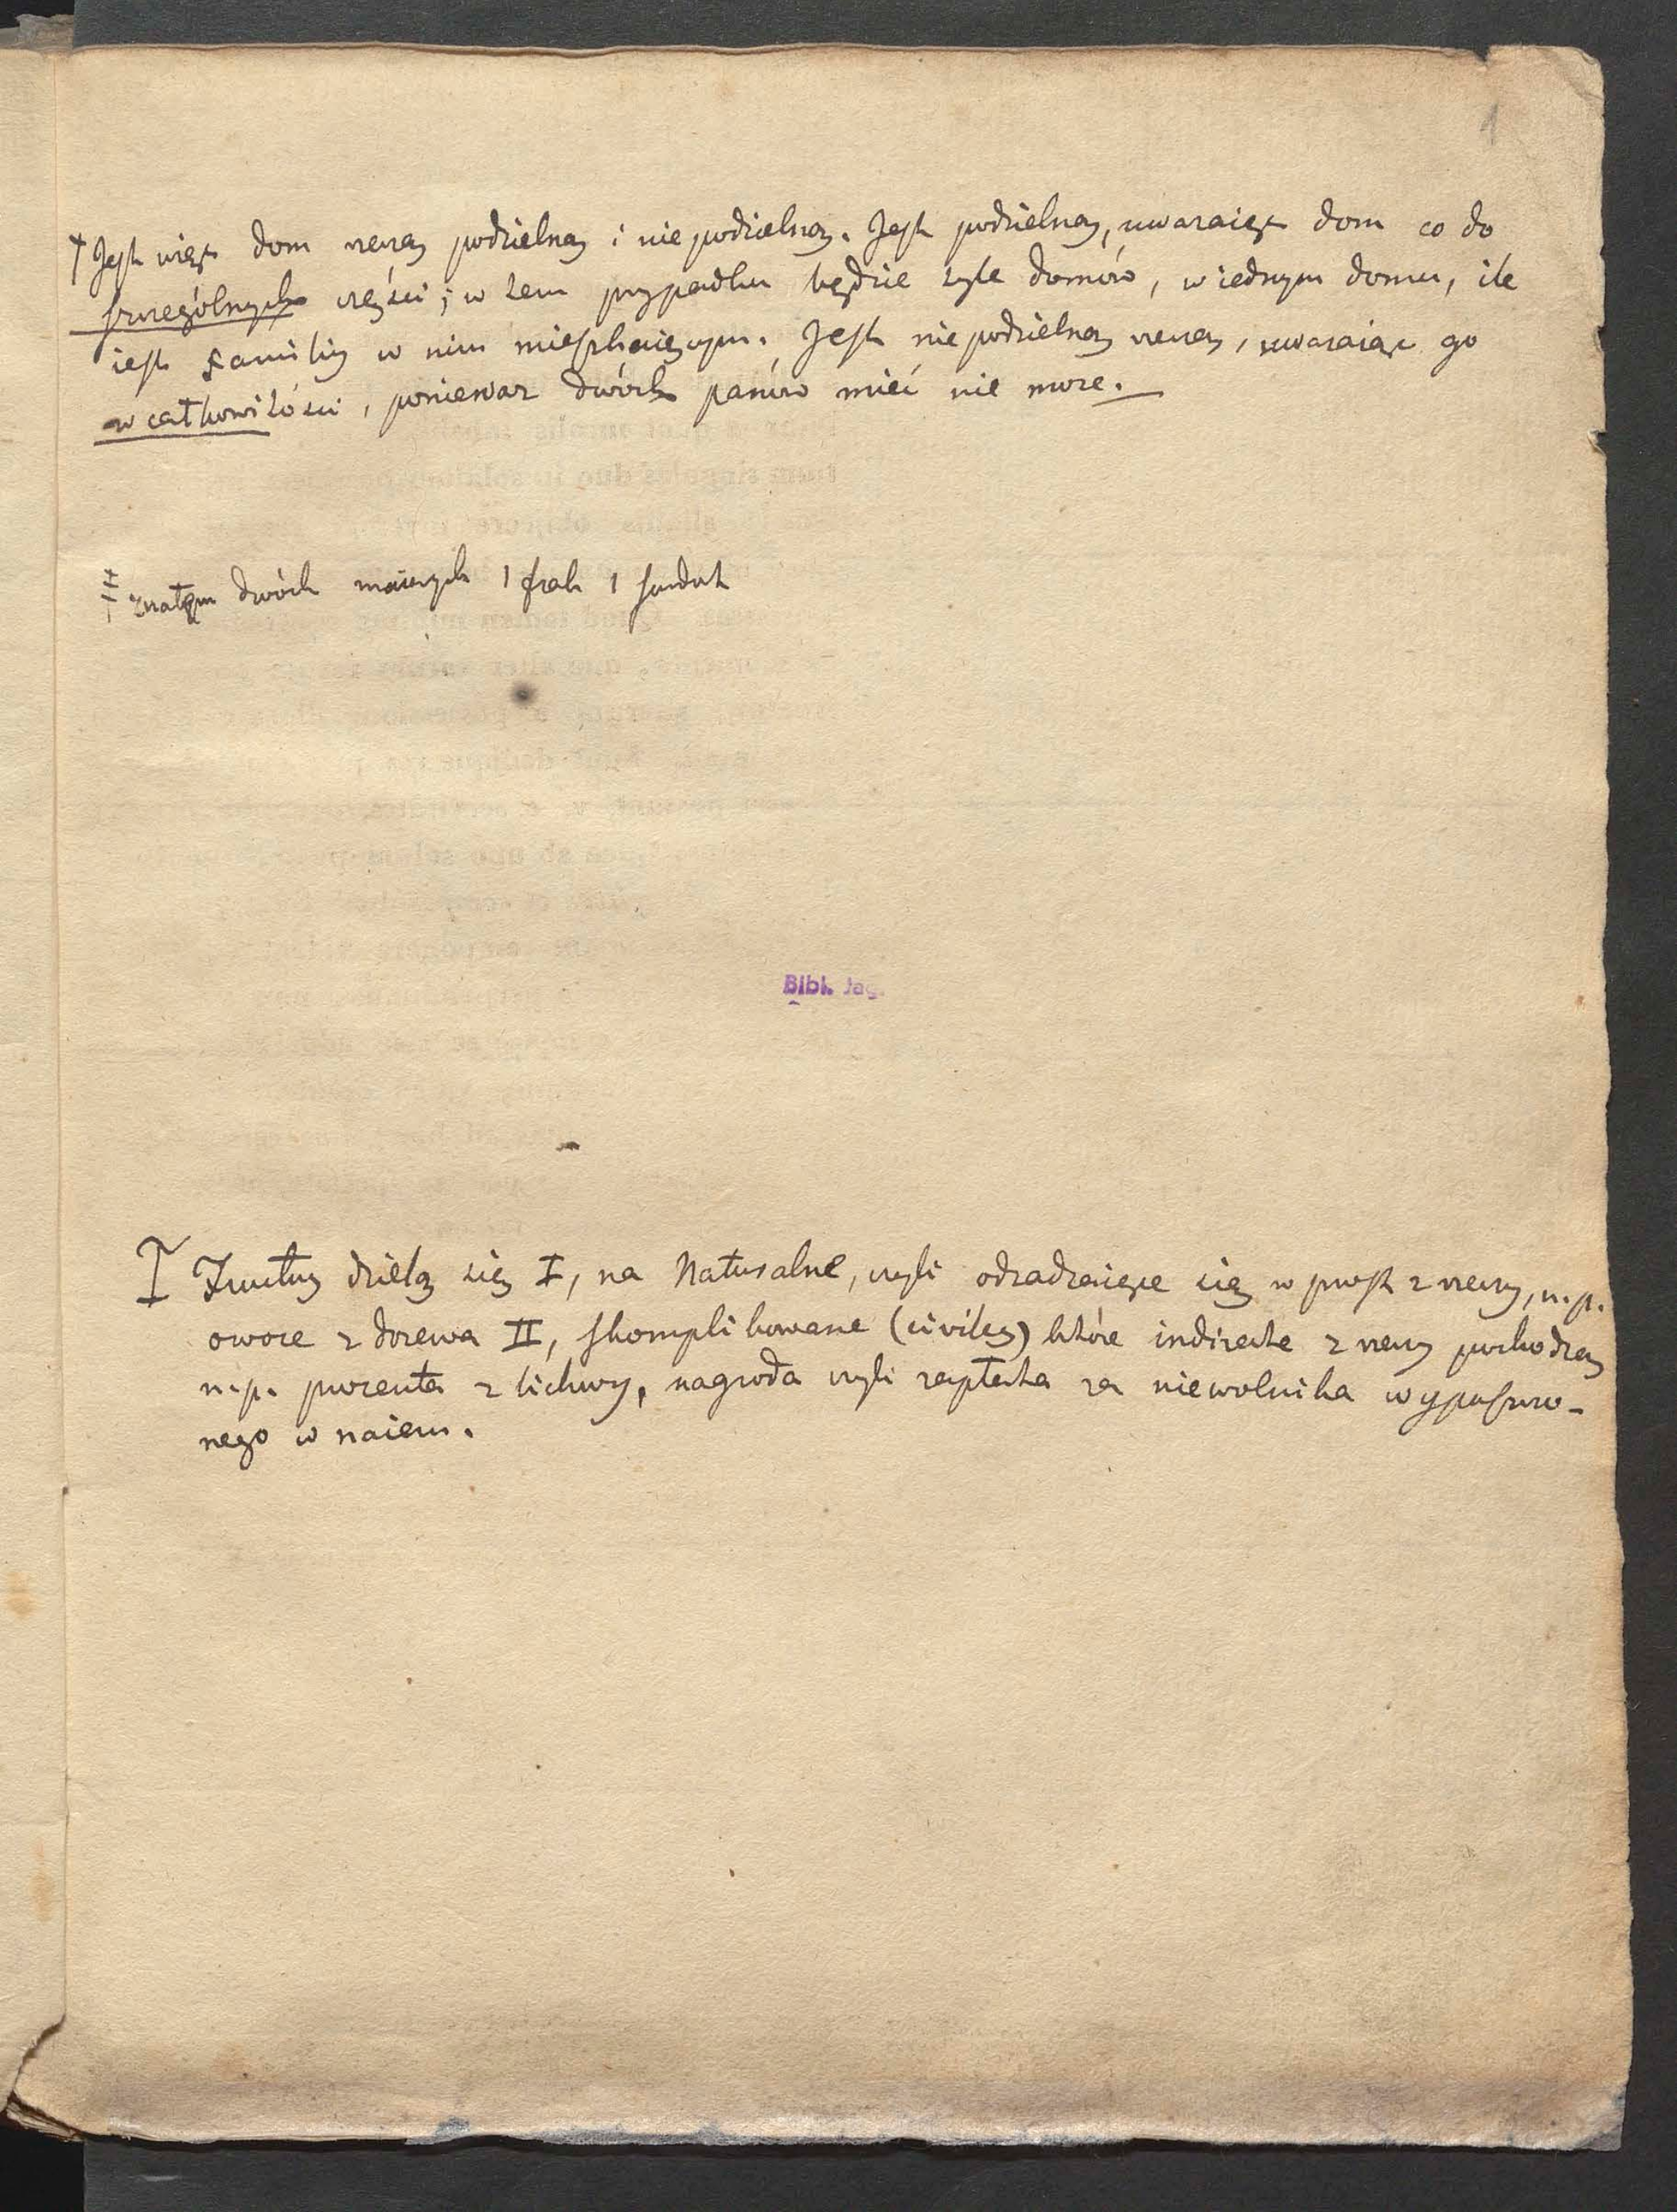 1
† Jest więc dom rzeczą podzielną i niepodzielną. Jest podzielną, uwazaiąc dom co do
szczególnych części; w tem przypadku będzie tyle domów, w iednym domu, ile
iest familiy w nim mieszkaiącym. Jest niepodzielną rzeczą, uwazaiąc go
w całkowitości, poniewaz dwóch panów mieć nie moze.
znałem dwóch maiących 1 frak 1 surdut
Bibl. Jag.
I Frukty dzielą się I, na Naturalne, czyli odradzaiące się w prost z rzeczy, n. p.
owoce z drzewa II, skomplikowane (civiles) które indirecte z rzeczy pochodzą
n. p. procenta z lichwy, nagroda czyli zapłata za niewolnika wypuszczo-
nego w naiem.